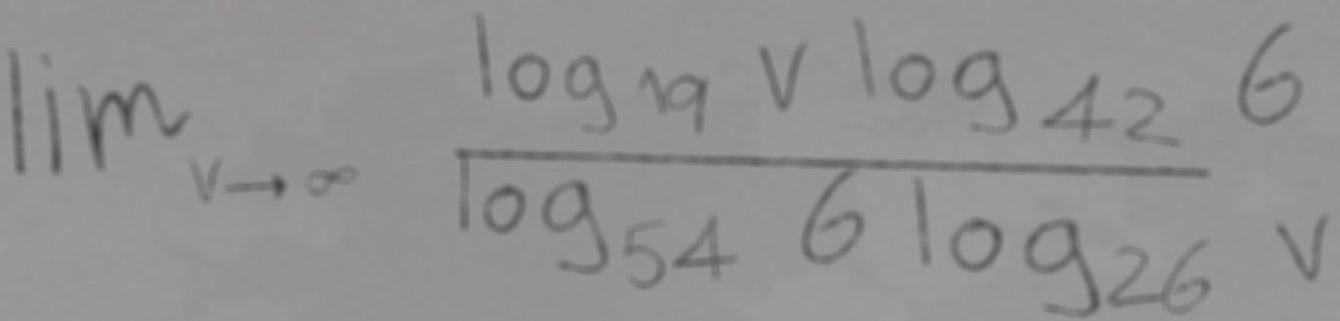 \lim_{v \to \infty} \frac{\log_{19} v \log_{42} 6}{\log_{54} 6 \log_{26} v}